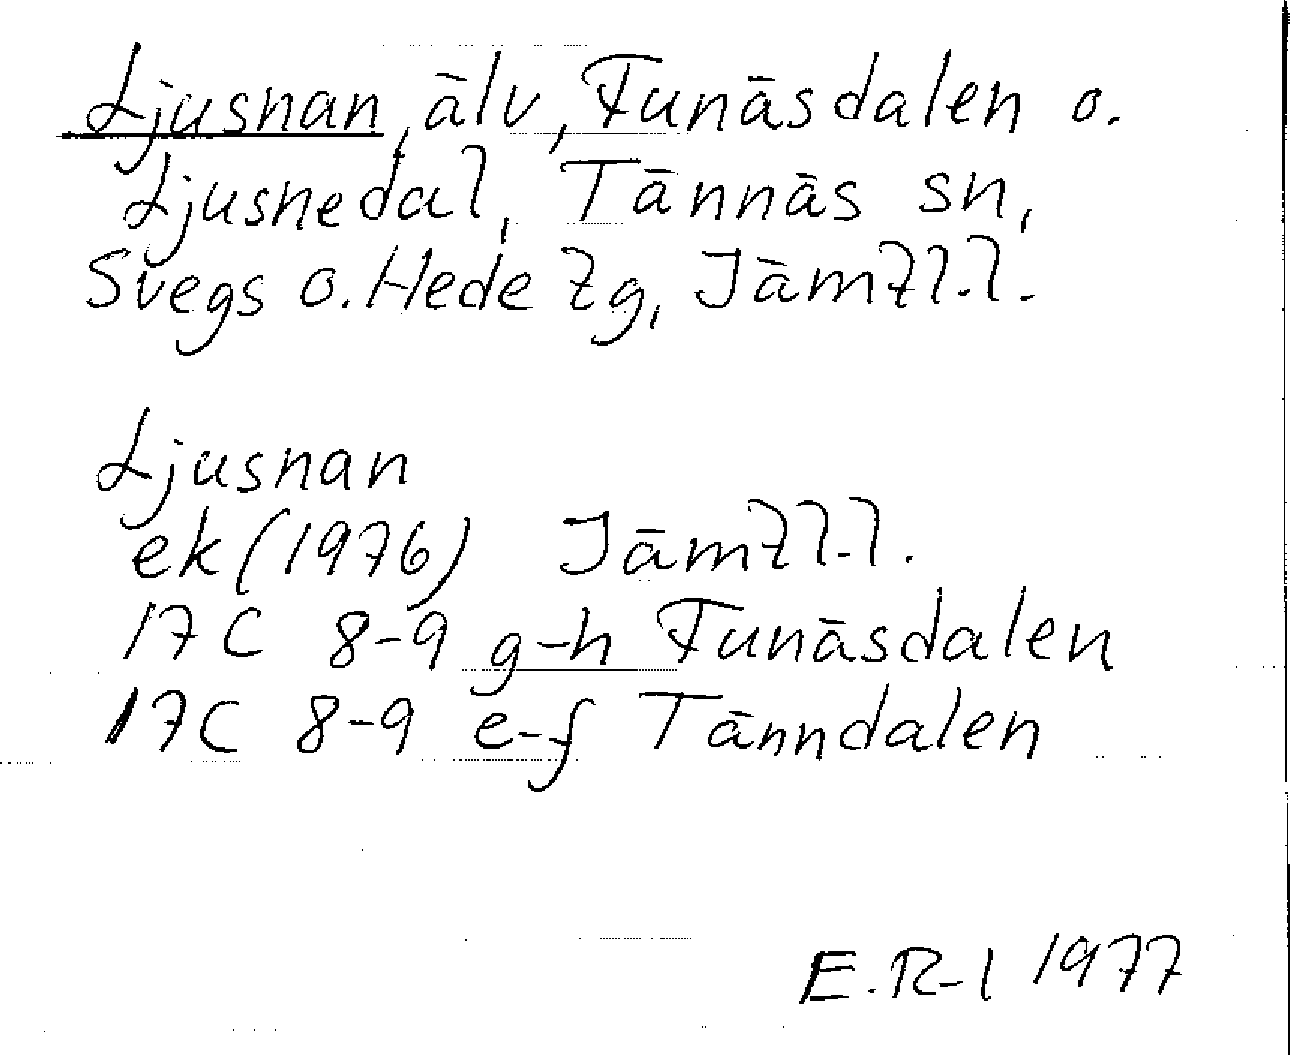 Ljusnan, älv, Funäsdalen o.
Ljusnedal, Tännäs sn,
Svegs o. Hede tg, Jämtl.l.
Ljusnan
ek (1976) Jämtl.l.
17C 8-9 g-h Funäsdalen
17C 8-9 e-f Tänndalen
E.R-l 1977